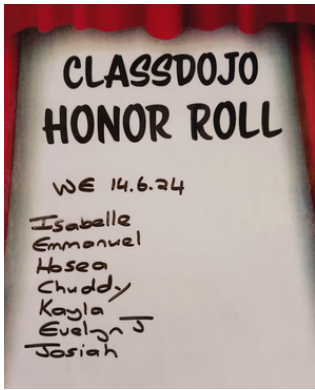 CLASSDOJO
HONOR ROLL
WE 14.6.24
Isabelle
Emmanuel
Hosea
Chuddy
Kayla
Evelyn J
Josiah